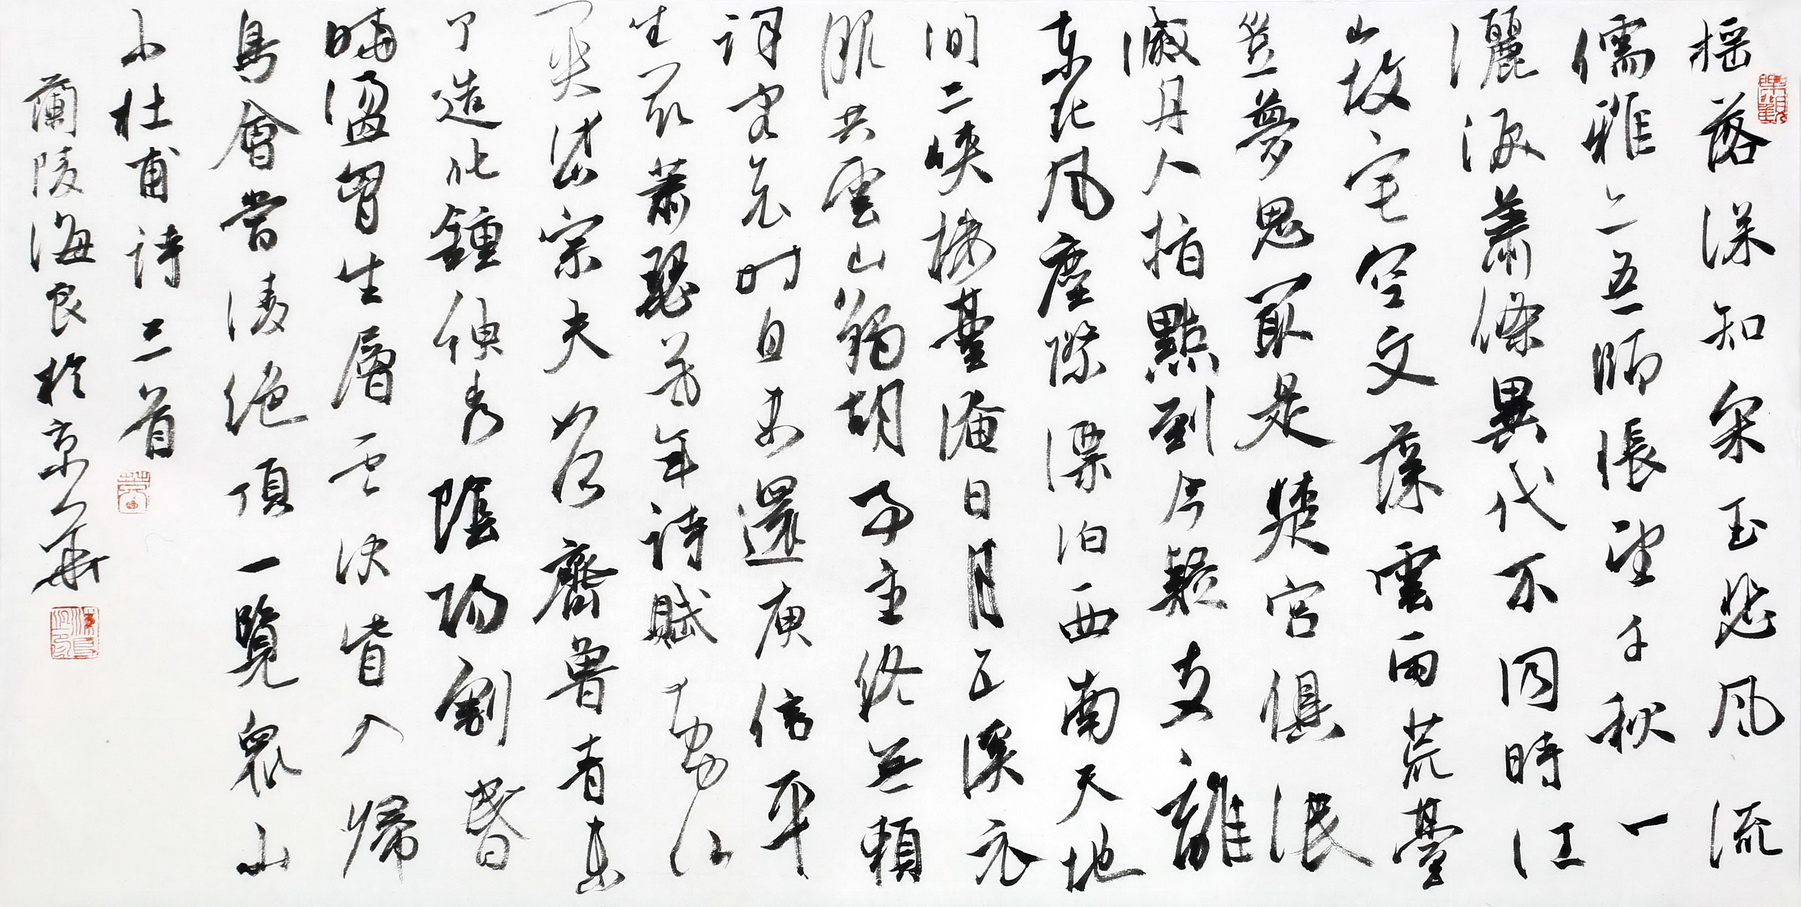 摇落深知宋玉悲风流
儒雅亦吾師悵望千秋一
灑淚蕭條異代不同時江
山故宅空文藻雲雨荒臺
豈夢思最是楚宮俱泯
滅舟人指點到今疑支離
東北风塵際漂泊西南天地
間三峽樓臺淹日月五溪衣
服共雲山羯胡事主終無賴
詞客哀時且未還庾信平
生最蕭瑟暮年詩賦動江
關岱宗夫如何齊魯青未
了造化鍾神秀陰陽割昏
曉盪胷生層雲決眥入歸
鳥會當凌絕頂一覽眾山
小杜甫詩三首
蘭陵海良於京華